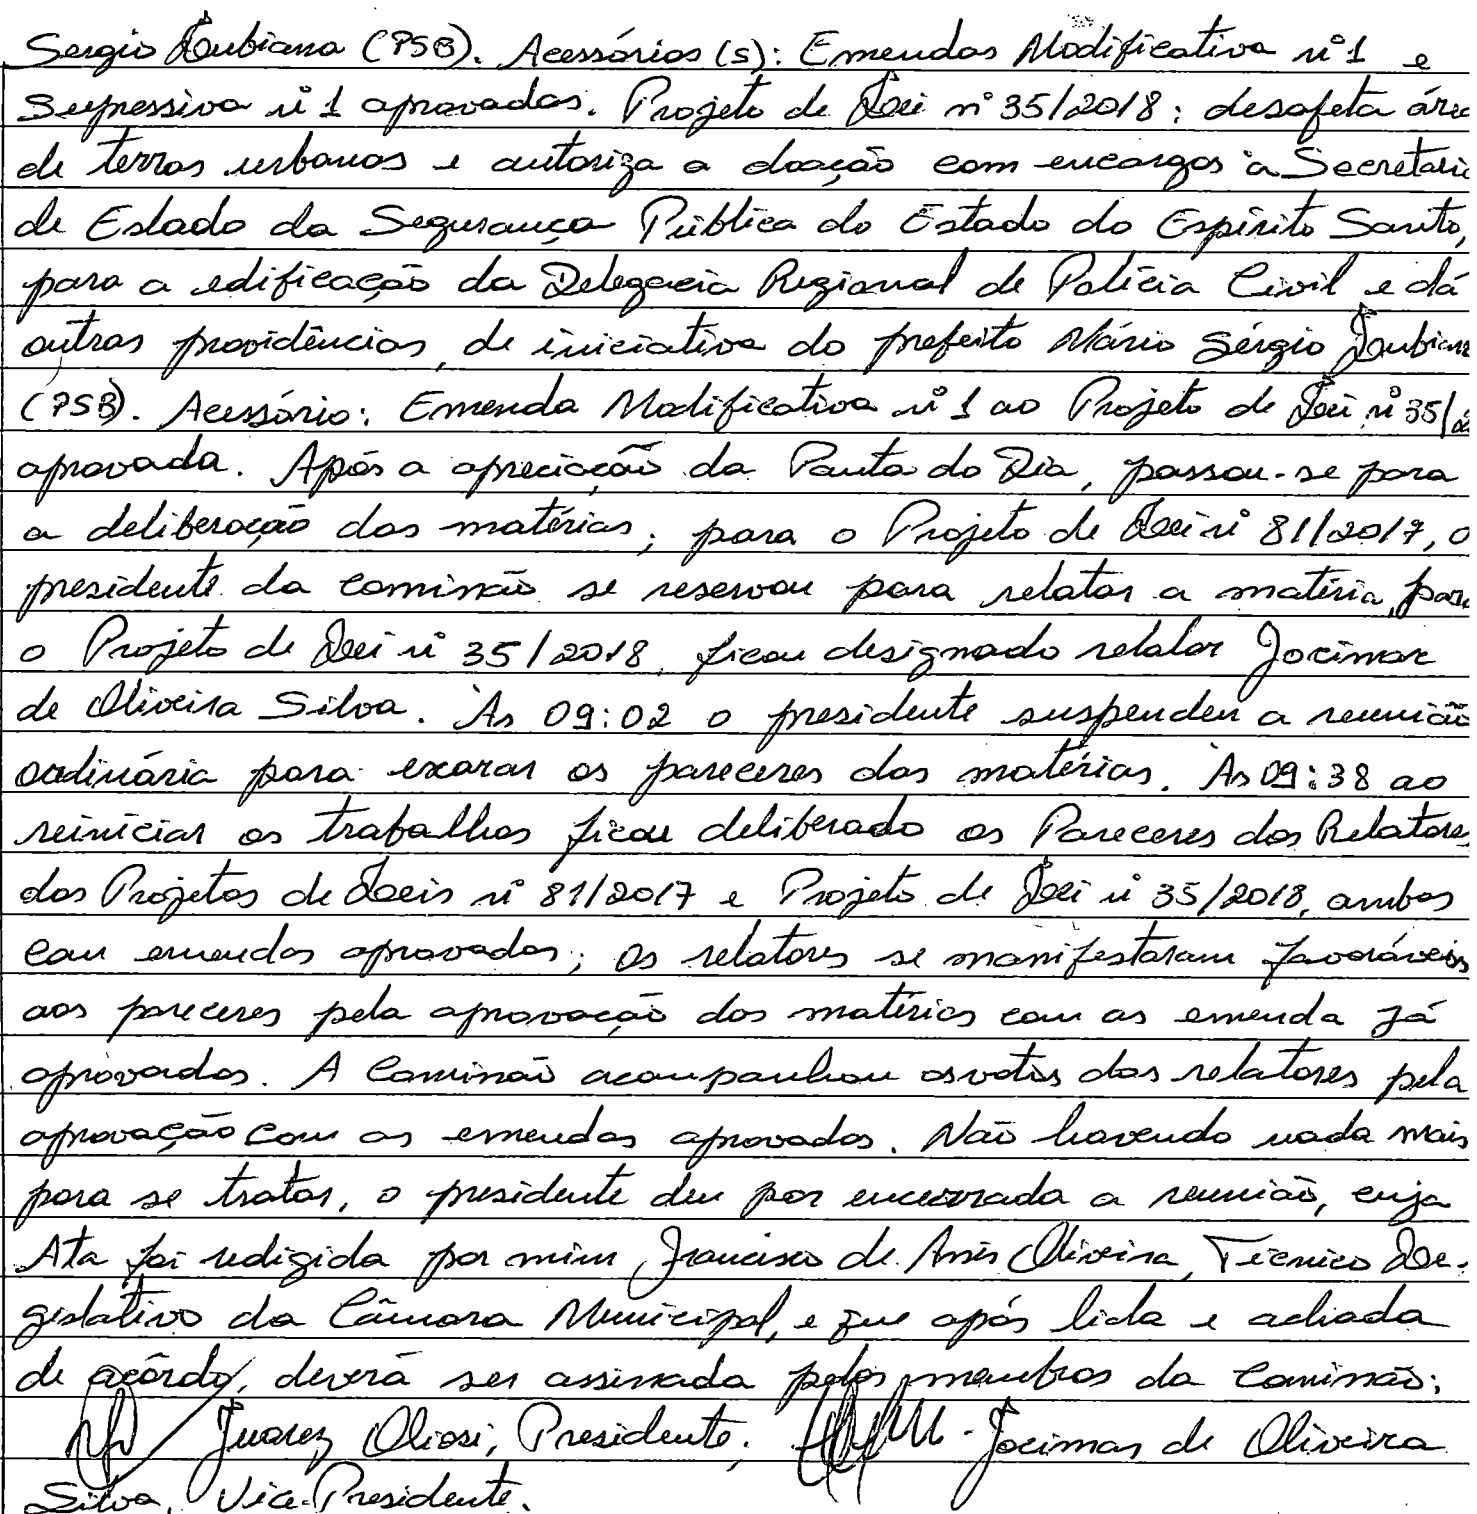 Sergio Lubiana (PSB). Acessórios (s): Emendas Modificativa nº 1 e
Supressiva nº 1 aprovadas. Projeto de Lei nº 35/2018: desafeta área
de terras urbanas e autoriza a doação com encargos à Secretaria
de Estado da Segurança Pública do Estado do Espírito Santo,
para a edificação da Delegacia Regional de Polícia Civil e dá
outras providências, de iniciativa do prefeito Mário Sérgio Lubiana
(PSB). Acessório: Emenda Modificativa nº 1 ao Projeto de Lei nº 35/2
aprovada. Após a apreciação da Pauta do Dia, passou-se para
a deliberação das matérias; para o Projeto de Lei nº 81/2017, o
presidente da Comissão se reservou para relatar a matéria, para
o Projeto de Lei nº 35/2018, ficou designado relator Jocimar
de Oliveira Silva. Às 09:02 o presidente suspendeu a reunião
ordinária para exarar os pareceres das matérias. Às 09:38 ao
reiniciar os trabalhos ficou deliberado os Pareceres dos Relatores
dos Projetos de Leis nº 81/2017 e Projeto de Lei nº 35/2018, ambos
com emendas aprovadas; os relatores se manifestaram favoráveis
aos pareceres pela aprovação das matérias com as emenda já
aprovadas. A Comissão acompanhou os votos dos relatores pela
aprovação com as emendas aprovadas. Não havendo nada mais
para se tratar, o presidente deu por encerrada a reunião, cuja
Ata foi redigida por mim, Francisco de Assis Oliveira, Técnico Le-
gislativo da Câmara Municipal, e que após lida e achada
de acôrdo, deverá ser assinada pelos membros da Comissão:
Juarez Oliosi, Presidente; Jocimar de Oliveira
Silva, Vice-Presidente.